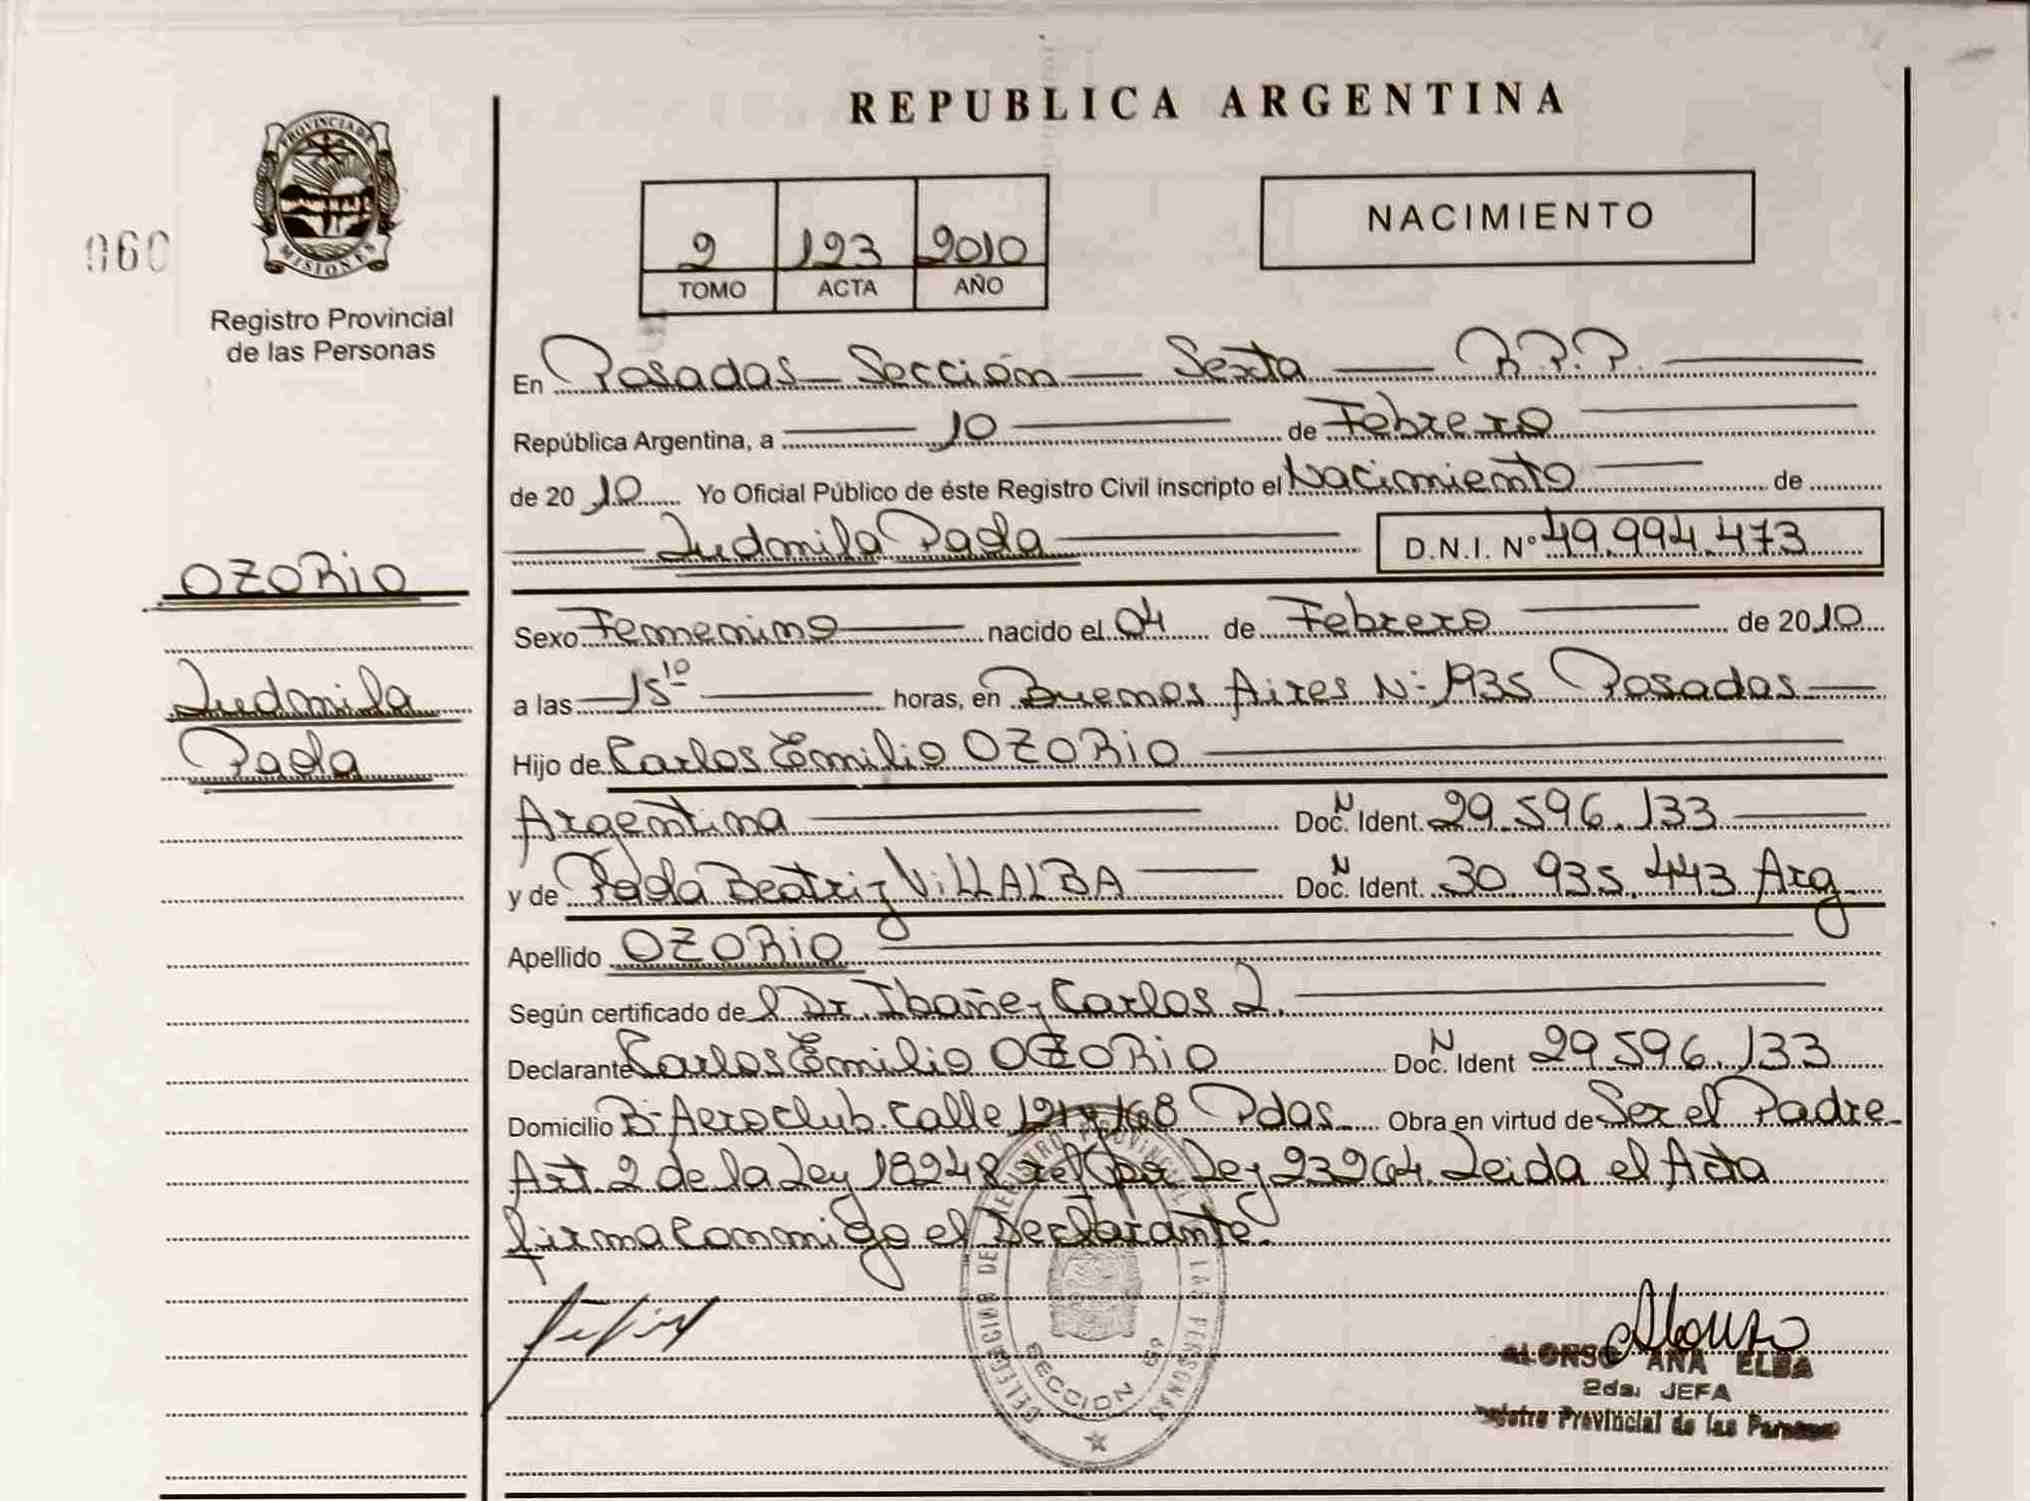 REPUBLICA ARGENTINA
PROVINCIA DE
MISIONES
060
Registro Provincial
de las Personas
2 123 2010
TOMO ACTA AÑO
NACIMIENTO
En Posadas Sección Sexta R.P.P.
República Argentina, a 10 de Febrero
de 2010 Yo Oficial Público de éste Registro Civil inscripto el Nacimiento de
Ludmila Paola D.N.I. Nº 49.994.473
OZORIO
Ludmila
Paola
Sexo Femenino nacido el 04 de Febrero de 2010
a las 15 10 horas, en Buenos Aires Nº 1935 Posadas
Hijo de Carlos Emilio OZORIO
Argentina Doc. N Ident. 29.596.133
y de Paola Beatriz VILLALBA Doc. N Ident. 30.935.443 Arg
Apellido OZORIO
Según certificado de l Dr. Ibañez Carlos
Declarante Carlos Emilio OZORIO Doc. N Ident 29.596.133
Domicilio Bº Aeroclub. Calle 121 y 168 Pdas. Obra en virtud de Ser el Padre
Art. 2 de la Ley 18248 ref por Ley 23264. Leida el Acta
firma conmigo el Declarante.
DELEGACION DE REGISTRO PROVINCIAL DE LAS PERSONAS
SECCION 6ª
Alonso
ALONSO ANA ELBA
2da. JEFA
Registro Provincial de las Personas